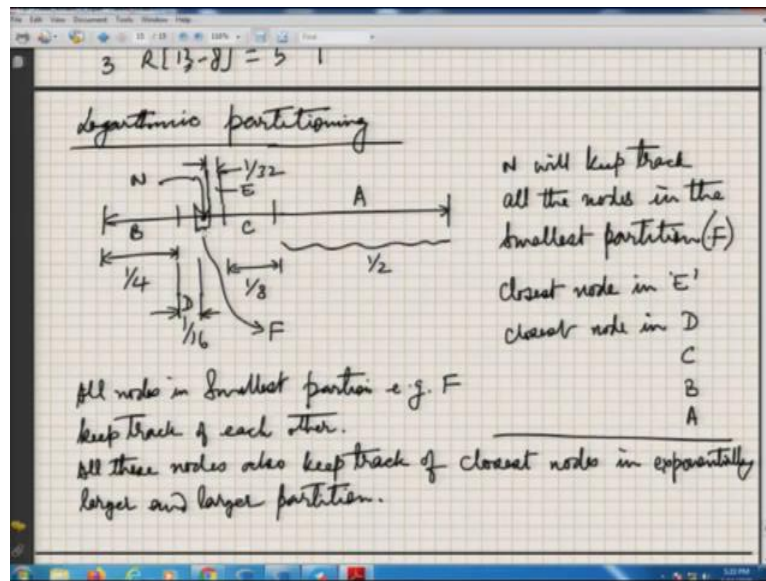 File Edit View Document Tools Window Help
15 / 15
Find
3 R[13-8] = 5 1
Logarithmic partitioning
N
1/32
E
A
B
C
1/4
1/8
1/2
D
1/16
F
N will keep track
all the nodes in the
smallest partition (F)
closest node in 'E'
closest node in D
C
B
A
All nodes in smallest partion e.g. F
keep track of each other.
All these nodes also keep track of closest nodes in exponentially
larger and larger partition.